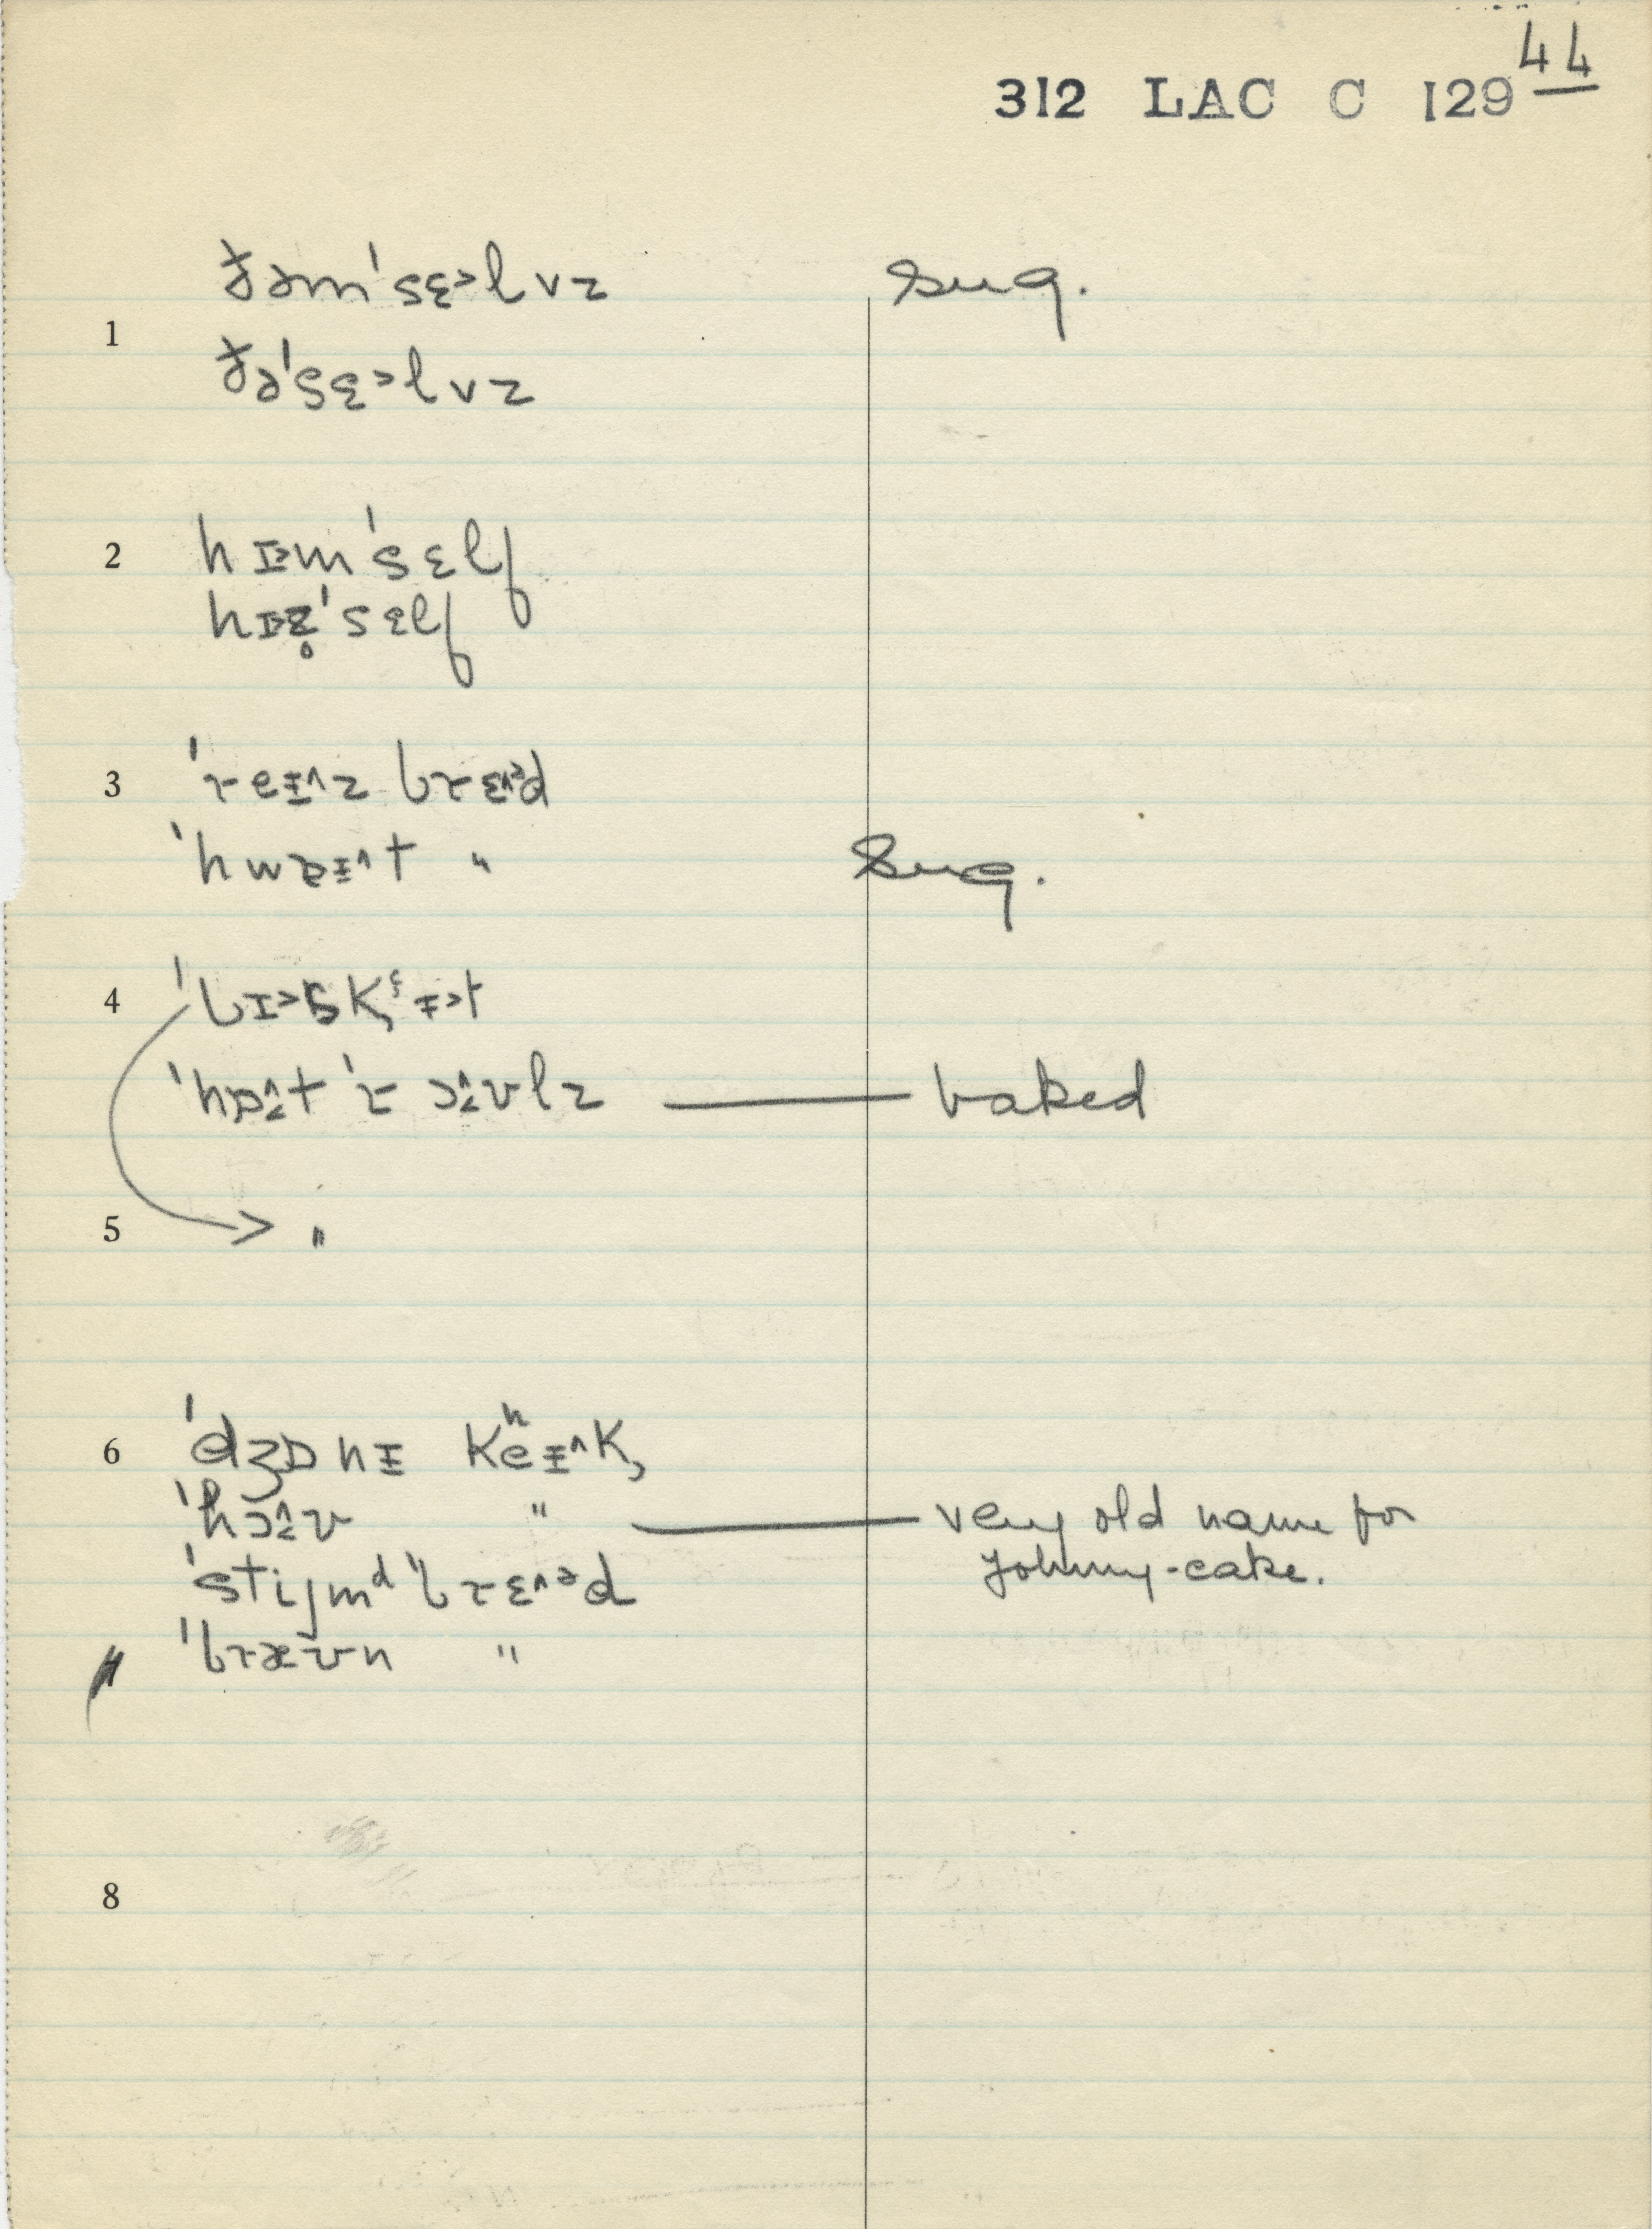 44
312 LAC C 129
ðəm'sɛ˃lvz sug.
1
ðə'sɛ˃lvz
2 hɪ˃m'sɛlf
hɪ˃z̥'sɛlf
3 'reɪ^z brɛ^ᵊd
'hwɒɪ^t " Sug.
4 'bɪ˃sk̹ɪ˃t
'hɒ^t 'r oʊlz — baked
5 "
6 'dʒɒnɪ kʰeɪ^k,
'hoʊ " — very old name for
Johnny-cake.
'stijmᵈ 'brɛ^ᵊd
'bræʊn "
8